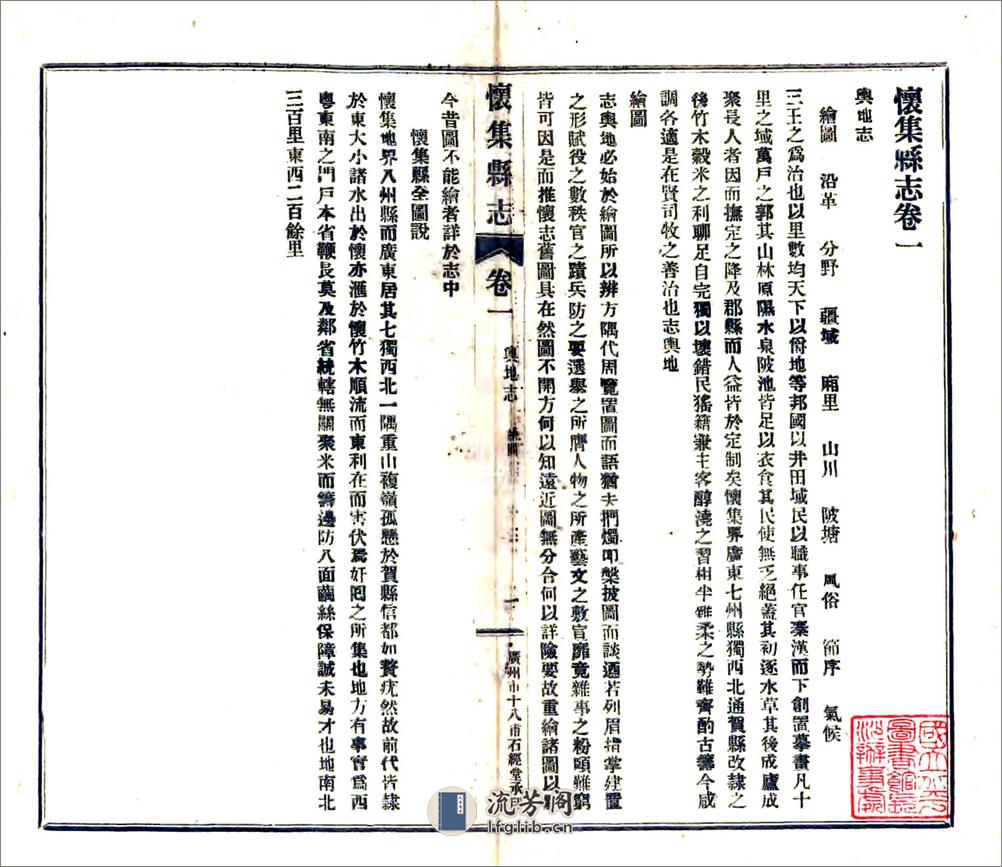 懷集縣志卷一
輿地志
繪圖 沿革 分野 疆域 廂里 山川 陂塘 風俗 節序 氣候
三王之爲治也以里數均天下以爵地等邦國以井田域民以職事任官秦漢而下創置摹畫凡十
里之域萬戶之郭其山林原隰水泉陂池皆足以衣食其民使無乏絕蓋其初逐水草其後成廬成
聚長人者因而撫定之降及郡縣而人益皆於定制矣懷集界廣東七州縣獨西北通賀縣改隸之
後竹木穀米之利聊足自完獨以壤錯民猺籍叢主客醇澆之習相半雜柔之勢難齊酌古籌今咸
調各適是在賢司牧之善治也志輿地
繪圖
志輿地必始於繪圖所以辨方隅代周覽置圖而語猶夫捫燭叩槃披圖而談迺若列眉指掌建置
之形賦役之數秩官之蹟兵防之要選舉之所膺人物之所產藝文之敷宣雜事之粉頤難窮
皆可因是而推懷志舊圖具在然圖不開方何以知遠近圖無分合何以詳險要故重繪諸圖以
懷集縣志
卷一
輿地志
繪圖
一
廣州市十八甫石經堂承
今昔圖不能繪者詳於志中
懷集縣全圖說
懷集地界八州縣而廣東居其七獨西北一隅重山複嶺孤懸於賀縣信都如贅疣然故前代皆隸
於東大小諸水出於懷亦滙於懷竹木順流而東利在而害伏焉奸宄之所集也地方有事實爲西
粵東南之門戶本省鞭長莫及鄰省統轄無關聚米而籌邊防八面繭絲保障誠未易才也地南北
三百里東西二百餘里
國立北平
圖書館
辦事處
流芳阁
lfglib.cn